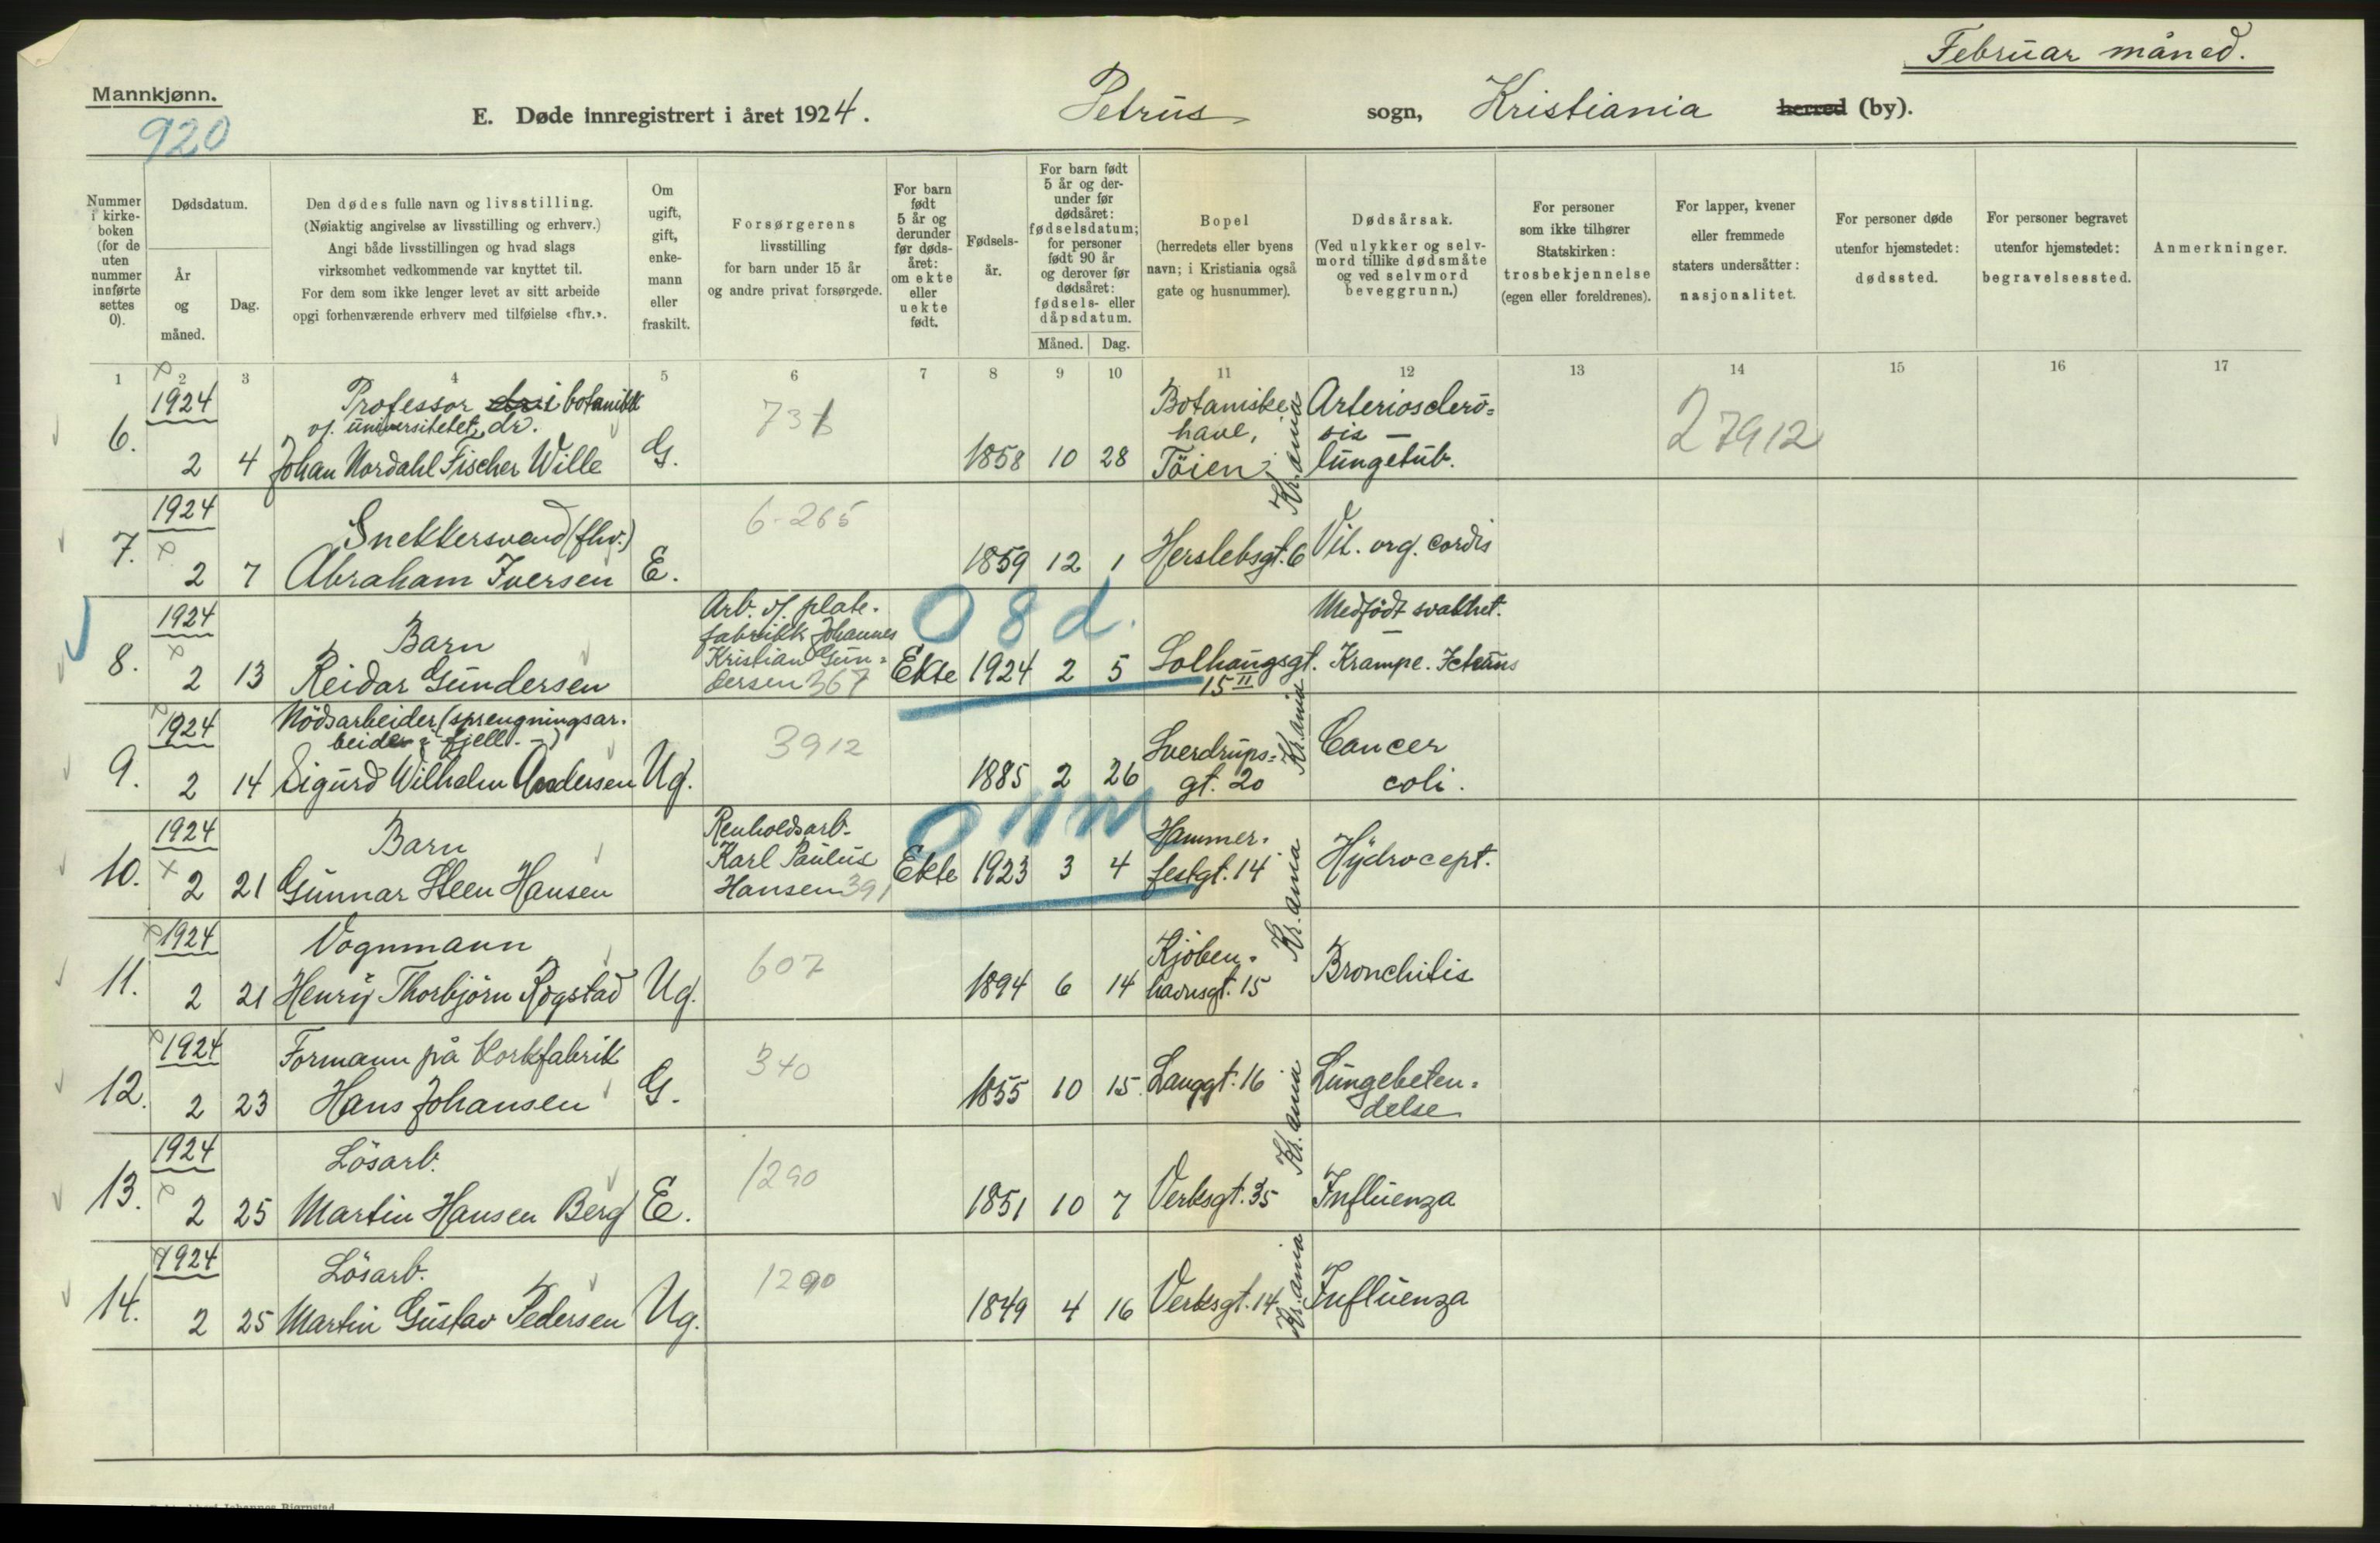 Februar måned.
Mannkjønn.
920
E. Døde innregistrert i året 1924. Petrus sogn, Kristiania herred (by).
Nummer i kirke- boken (for de uten nummer innførte settes 0).
Dødsdatum.
År og måned.
Dag.
Den dødes fulle navn og livsstilling.
(Nøiaktig angivelse av livsstilling og erhverv.)
Angi både livsstillingen og hvad slags
virksomhet vedkommende var knyttet til.
For dem som ikke lenger levet av sitt arbeide
opgi forhenværende erhverv med tilføielse «fhv.».
Om ugift, gift, enke- mann eller fraskilt.
Forsørgerens
livsstilling
for barn under 15 år
og andre privat forsørgede.
For barn født 5 år og derunder før døds- året: om ekte eller uekte født.
Fødsels- år.
For barn født 5 år og der- under før dødsåret: fødselsdatum; for personer født 90 år og derover før dødsåret: fødsels- eller dåpsdatum.
Måned. Dag.
Bopel
(herredets eller byens
navn; i Kristiania også
gate og husnummer).
Dødsårsak.
(Ved ulykker og selv-
mord tillike dødsmåte
og ved selvmord
beveggrunn.)
For personer
som ikke tilhører
Statskirken:
trosbekjennelse
(egen eller foreldrenes).
For lapper, kvener
eller fremmede
staters undersåtter:
nasjonalitet.
For personer døde
utenfor hjemstedet:
dødssted.
For personer begravet
utenfor hjemstedet:
begravelsessted.
Anmerkninger.
1 2 3 4 5 6 7 8 9 10 11 12 13 14 15 16 17
6. 1924 2 4
Professor i botanikk
v/. universitetet, dr.
Johan Nordahl Fischer Wille
G. 1858 10 28
Botaniske
have,
Töien;
Kr.ania
Arteriosclerö=
sis —
lungetub.
27912
7. 1924 2 7
Snekkersvend (fhv.)
Abraham Iversen
E. 6-265 1859 12 1
Herslebsgt. 6
Vit. org. cordis
8. 1924 2 13
Barn
Reidar Gundersen
Arb. v/. plate-
fabrikk Johannes
Kristian Gun=
dersen 367
Ekte 1924 2 5
0 8 d.
Solhaugsgt.
15 II
Kr.ania
Medfödt svakhet.
—
Krampe. Icterus
9. 1924 2 14
Nödsarbeider (sprengningsar-
beider i fjell. -)
Sigurd Wilhelm Andersen
Ug. 3912 1885 2 26
Sverdrups=
gt. 20
Cancer
coli.
10. 1924 2 21
Barn
Gunnar Steen Hansen
Renholdsarb.
Karl Paulus
Hansen 391
Ekte 1923 3 4
0 11 m
Hammer-
festgt. 14
Kr.ania
Hydrocept.
11. 1924 2 21
Vognmann
Henry Thorbjörn Rogstad
Ug. 607 1894 6 14
Kjöben-
havnsgt. 15
Bronchitis
12. 1924 2 23
Formann på Korkfabrik
Hans Johansen
G. 340 1855 10 15
Langgt. 16
Kr.ania
Lungebeten=
delse
13. 1924 2 25
Lösarb.
Martin Hansen Berg
E. 1290 1851 10 7
Verksgt. 35
Influenza
14. 1924 2 25
Lösarb.
Martin Gustav Pedersen
Ug. 1290 1849 4 16
Verksgt. 14
Kr.ania
Influenza